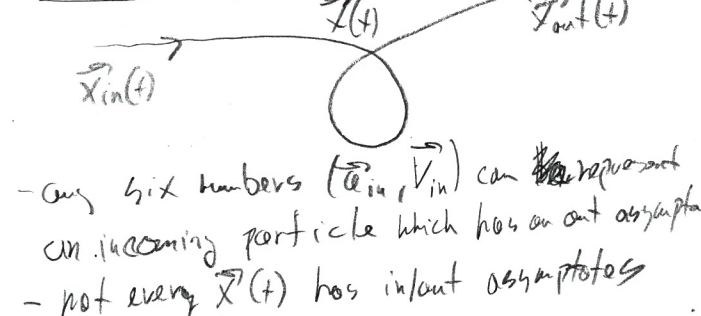 x⃗(t) x⃗out(t)
x⃗in(t)
- any six numbers (a⃗in, V⃗in) can represent
an incoming particle which has an out asympto
- not every x⃗(t) has in/out asymptotes